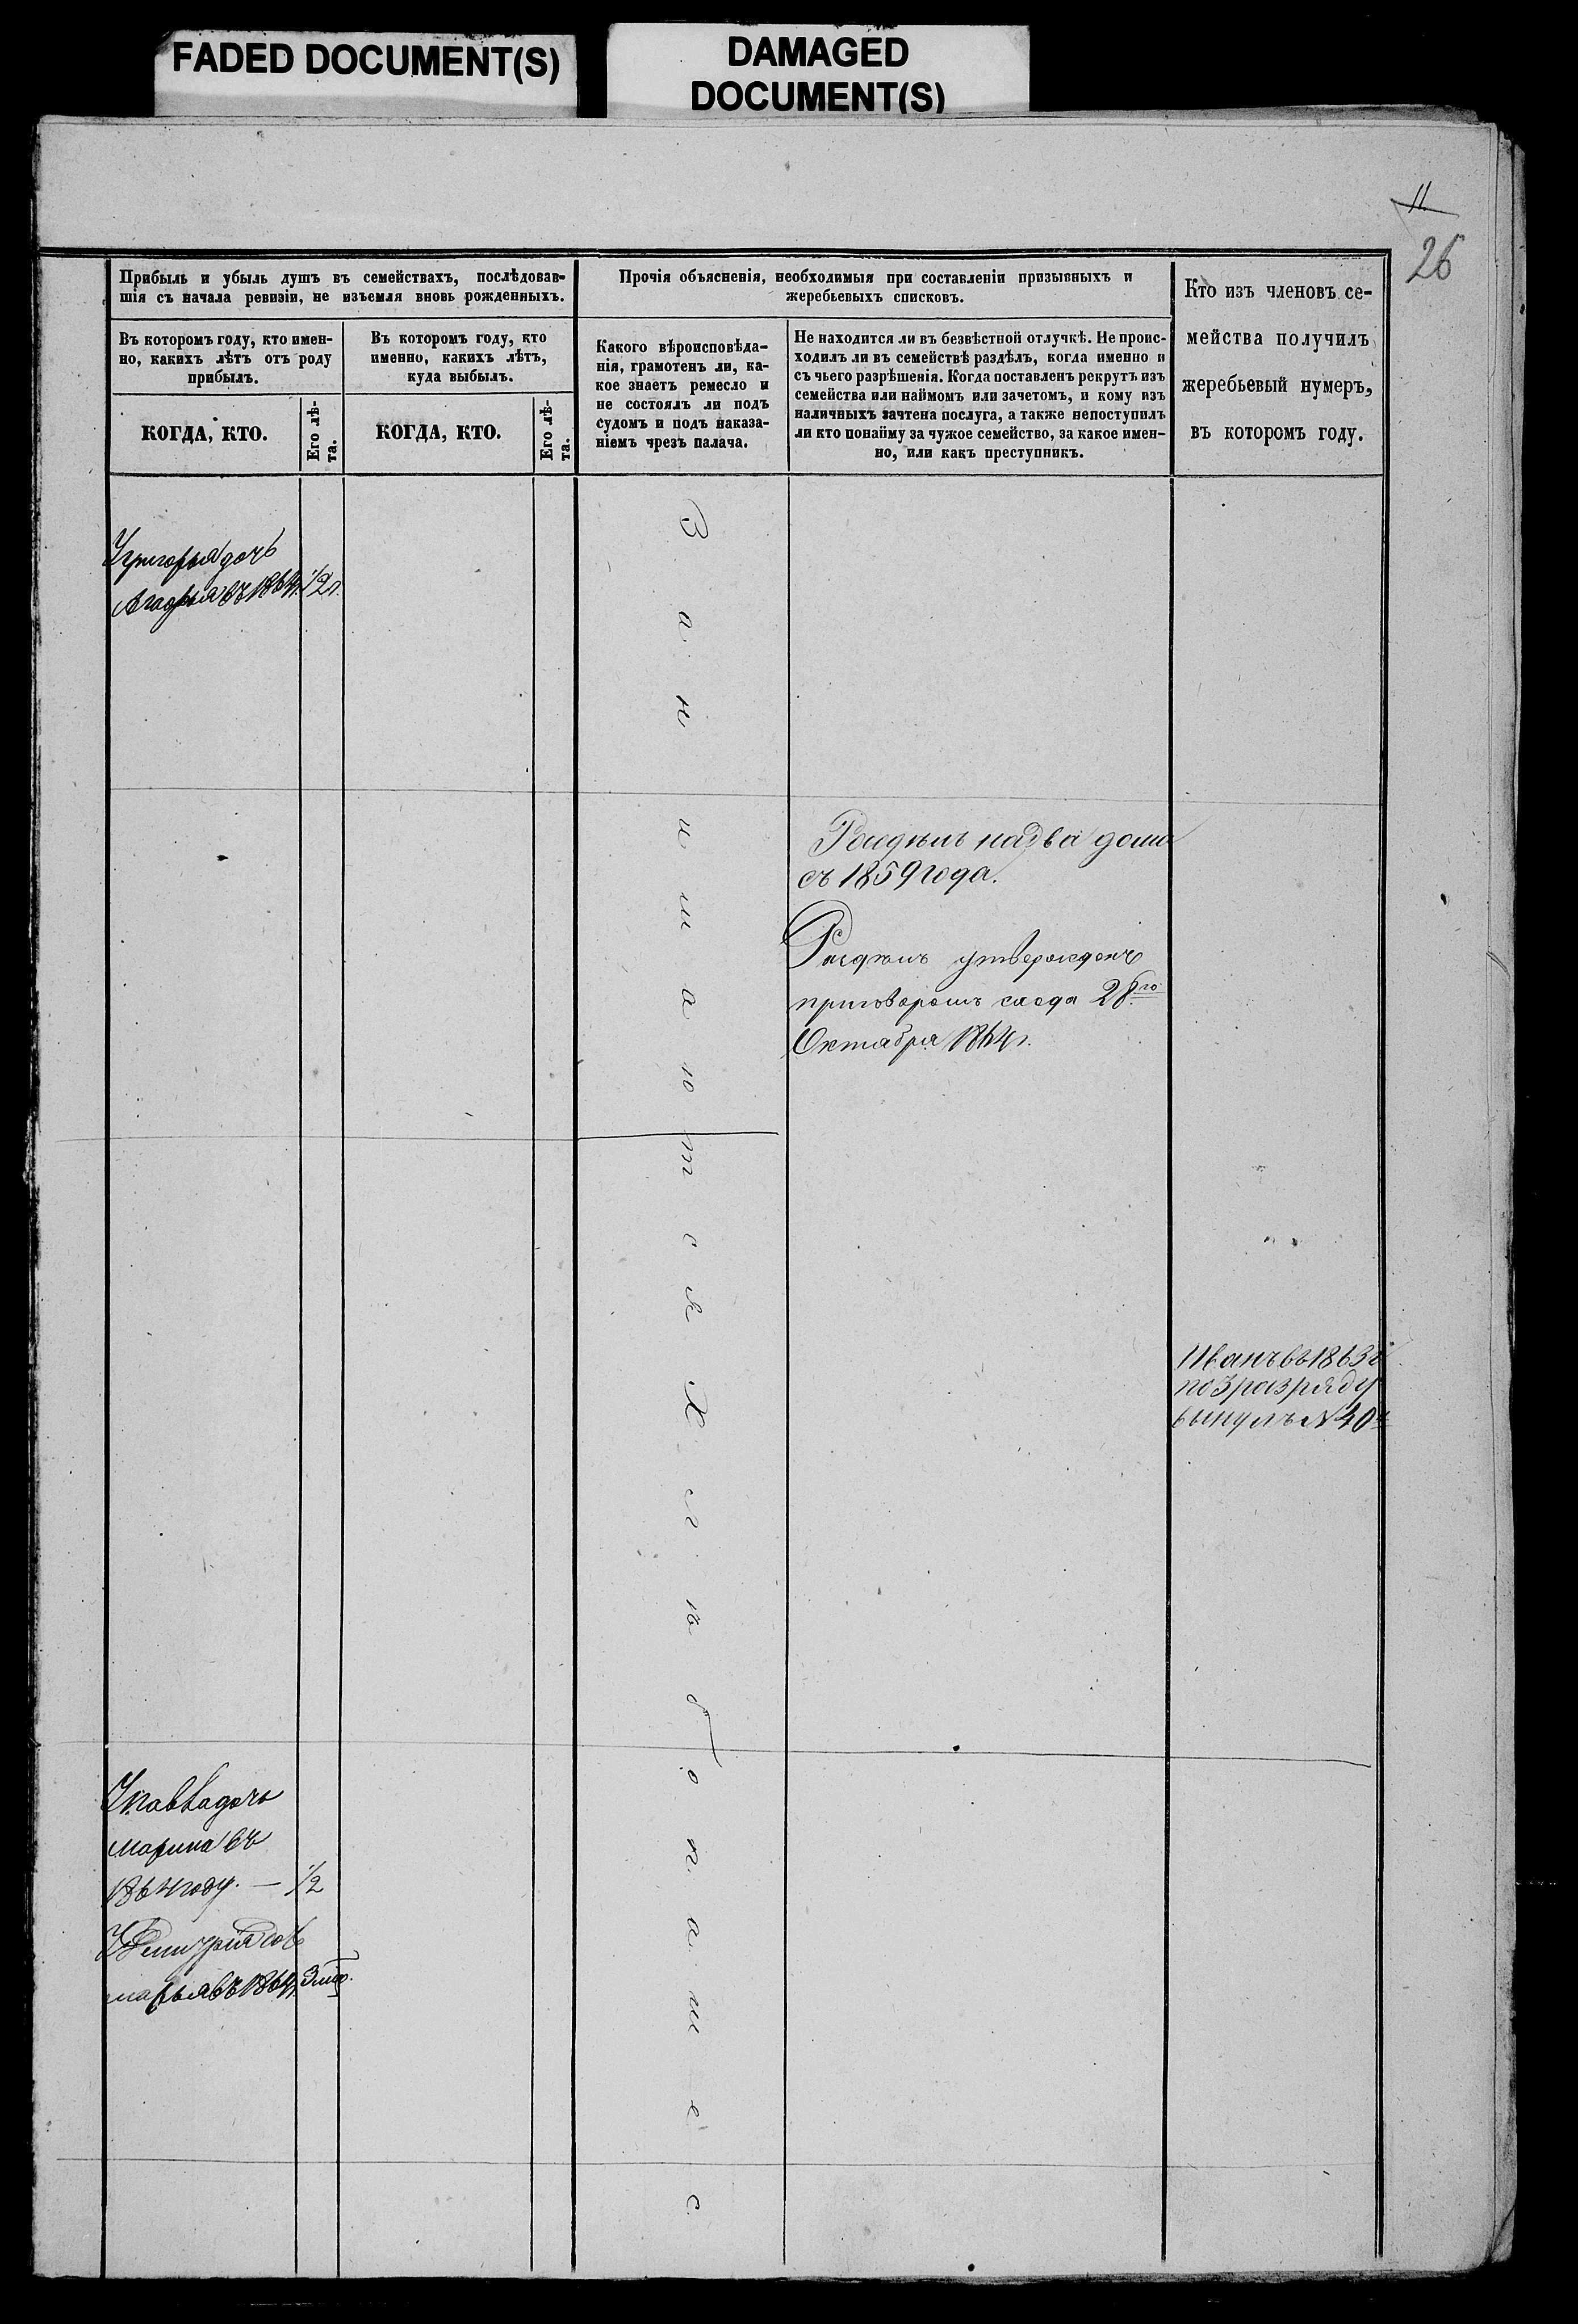 FADED DOCUMENT(S)
DAMAGED
DOCUMENT(S)
11
26
Прибыль и убыль душъ въ семействахъ, послѣдовав-
шія съ начала ревизіи, не изъемля вновь рожденныхъ.
Въ которомъ году, кто имен-
но, какихъ лѣтъ отъ роду
прибылъ.
КОГДА, КТО.
Его лѣ-
та.
Въ которомъ году, кто
именно, какихъ лѣтъ,
куда выбылъ.
КОГДА, КТО.
Его лѣ-
та.
Прочія объясненія, необходимыя при составленіи призывныхъ и
жеребьевыхъ списковъ.
Какого вѣроисповѣда-
нія, грамотенъ ли, ка-
кое знаетъ ремесло и
не состоялъ ли подъ
судомъ и подъ наказа-
ніемъ чрезъ палача.
Не находится ли въ безвѣстной отлучкѣ. Не проис-
ходилъ ли въ семействѣ раздѣлъ, когда именно и
съ чьего разрѣшенія. Когда поставленъ рекрутъ изъ
семейства или наймомъ или зачетомъ, и кому изъ
наличныхъ зачтена послуга, а также непоступилъ
ли кто понайму за чужое семейство, за какое имен-
но, или какъ преступникъ.
Кто изъ членовъ се-
мейства получилъ
жеребьевый нумеръ,
въ которомъ году.
Угригорья дочь
Агафья въ 1864г. 1/2 г.
Занимаются
хлѣбопашес
Раздѣлъ на два дома
съ 1859 года.
Раздѣлъ утвержденъ
приговоромъ схода 28го
Октября 1864г.
Иванъ въ 1863г
по 3 разряду
вынулъ N 40й
У павла дочь
марина въ
1864 году. — 1/2
У Дмитрія
марья въ 1864г.